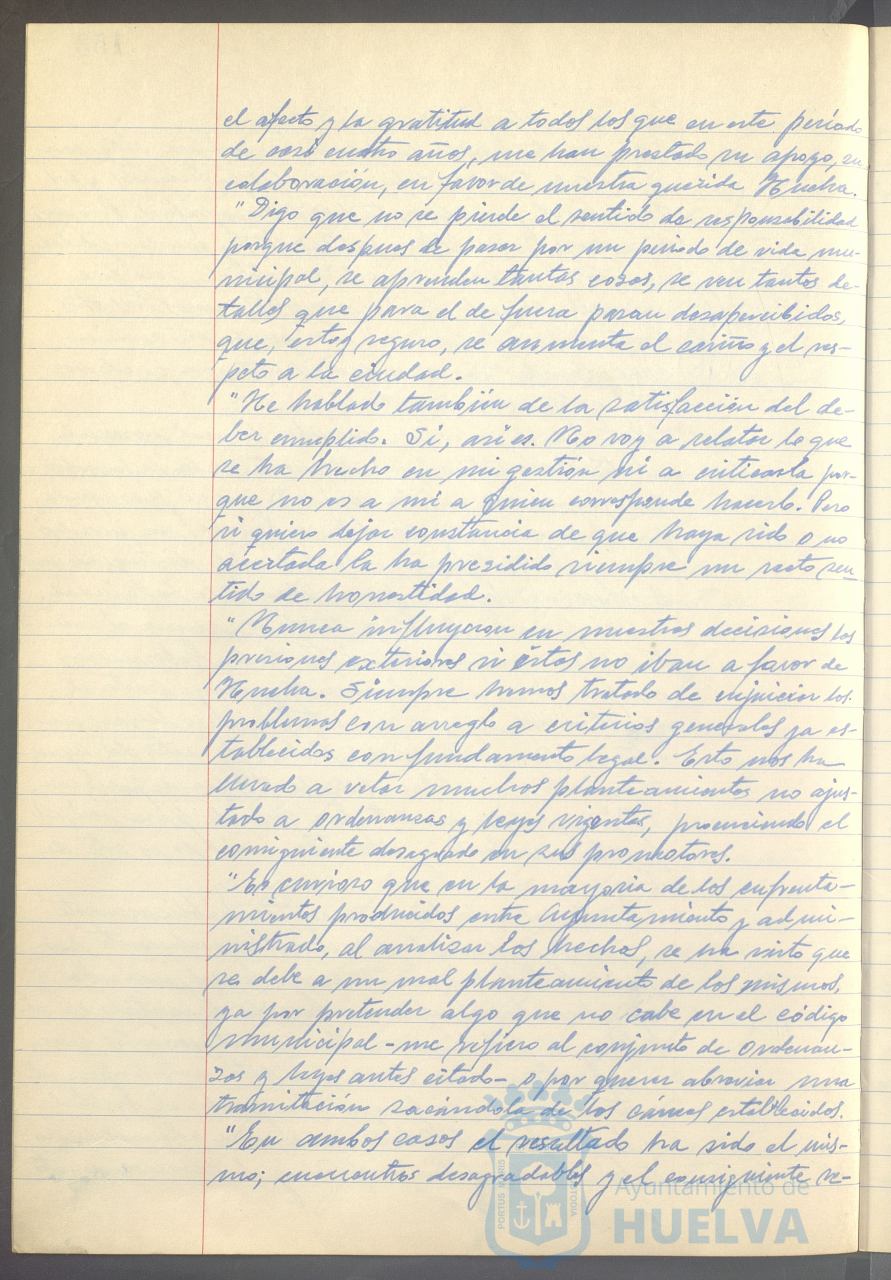 el afecto y la gratitud a todos los que en este período
de casi cuatro años, me han prestado su apoyo, su
colaboración, en favor de nuestra querida Huelva.
"Digo que no se pierde el sentido de responsabilidad
porque despues de pasar por un periodo de vida mu-
nicipal, se aprenden tantas cosas, se ven tantos de-
talles que para el de fuera pasan desapercibidos,
que, estoy seguro, se aumenta el cariño y el res-
peto a la ciudad.
"He hablado también de la satisfacción del de-
ber cumplido. Si, asi es. No voy a relatar lo que
se ha hecho en mi gestión ni a criticarla por-
que no es a mi a quien corresponde hacerlo. Pero
si quiero dejar constancia de que haya sido o no
acertada la ha presidido siempre un recto sen-
tido de honestidad.
"Nunca influyeron en nuestras decisiones las
presiones exteriores si éstas no iban a favor de
Huelva. Siempre hemos tratado de enjuiciar los
problemas con arreglo a criterios generales ya es-
tablecidos con fundamento legal. Esto nos ha
llevado a vetar muchos planteamientos no ajus-
tado a ordenanzas y leyes vigentes, produciendo el
consiguiente desagrado en sus promotores.
"Es curioso que en la mayoria de los enfrenta-
mientos producidos entre Ayuntamiento y admi-
nistrado, al analizar los hechos, se ha visto que
se debe a un mal planteamiento de los mismos,
ya por pretender algo que no cabe en el código
municipal - me refiero al conjunto de Ordenan-
zas y leyes antes citado - o por querer abreviar una
tramitación sacándola de los cauces establecidos.
"En ambos casos el resultado ha sido el mis-
mo; encuentros desagradables y el consiguiente re-
PORTUS MARIS
CUSTODIA
Ayuntamiento de
HUELVA